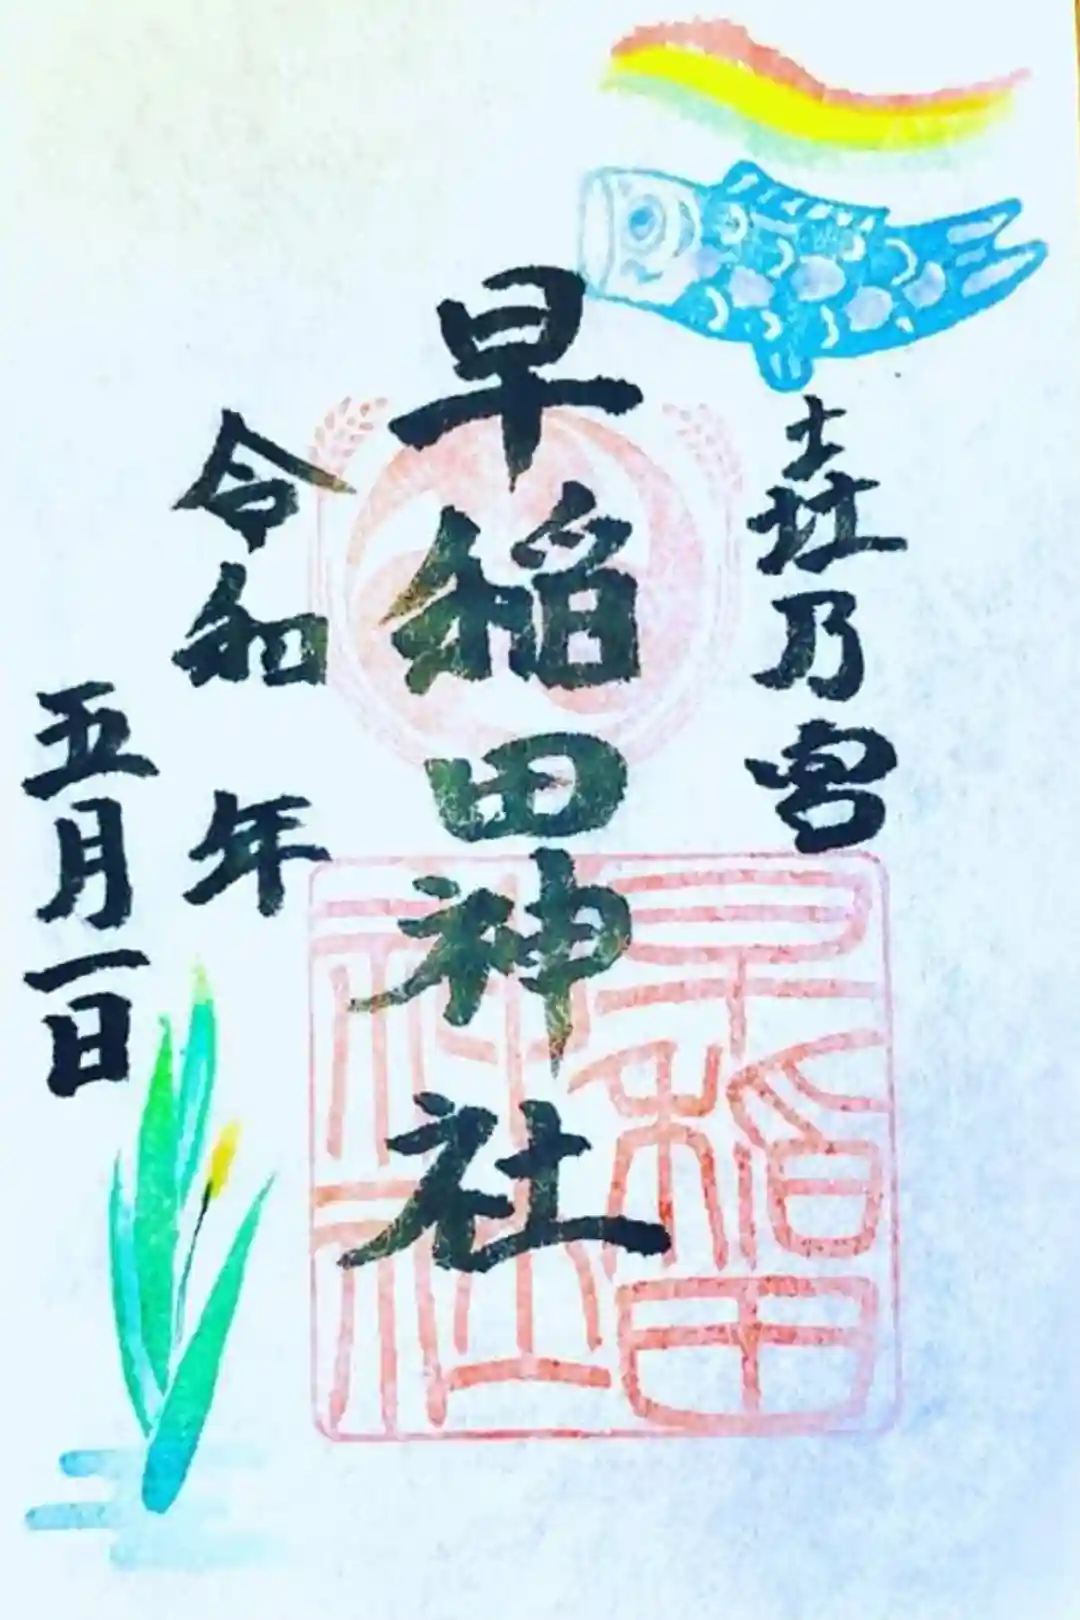 壵乃宮
早稲田神社
令和 年
五月一日
早稲田
神社